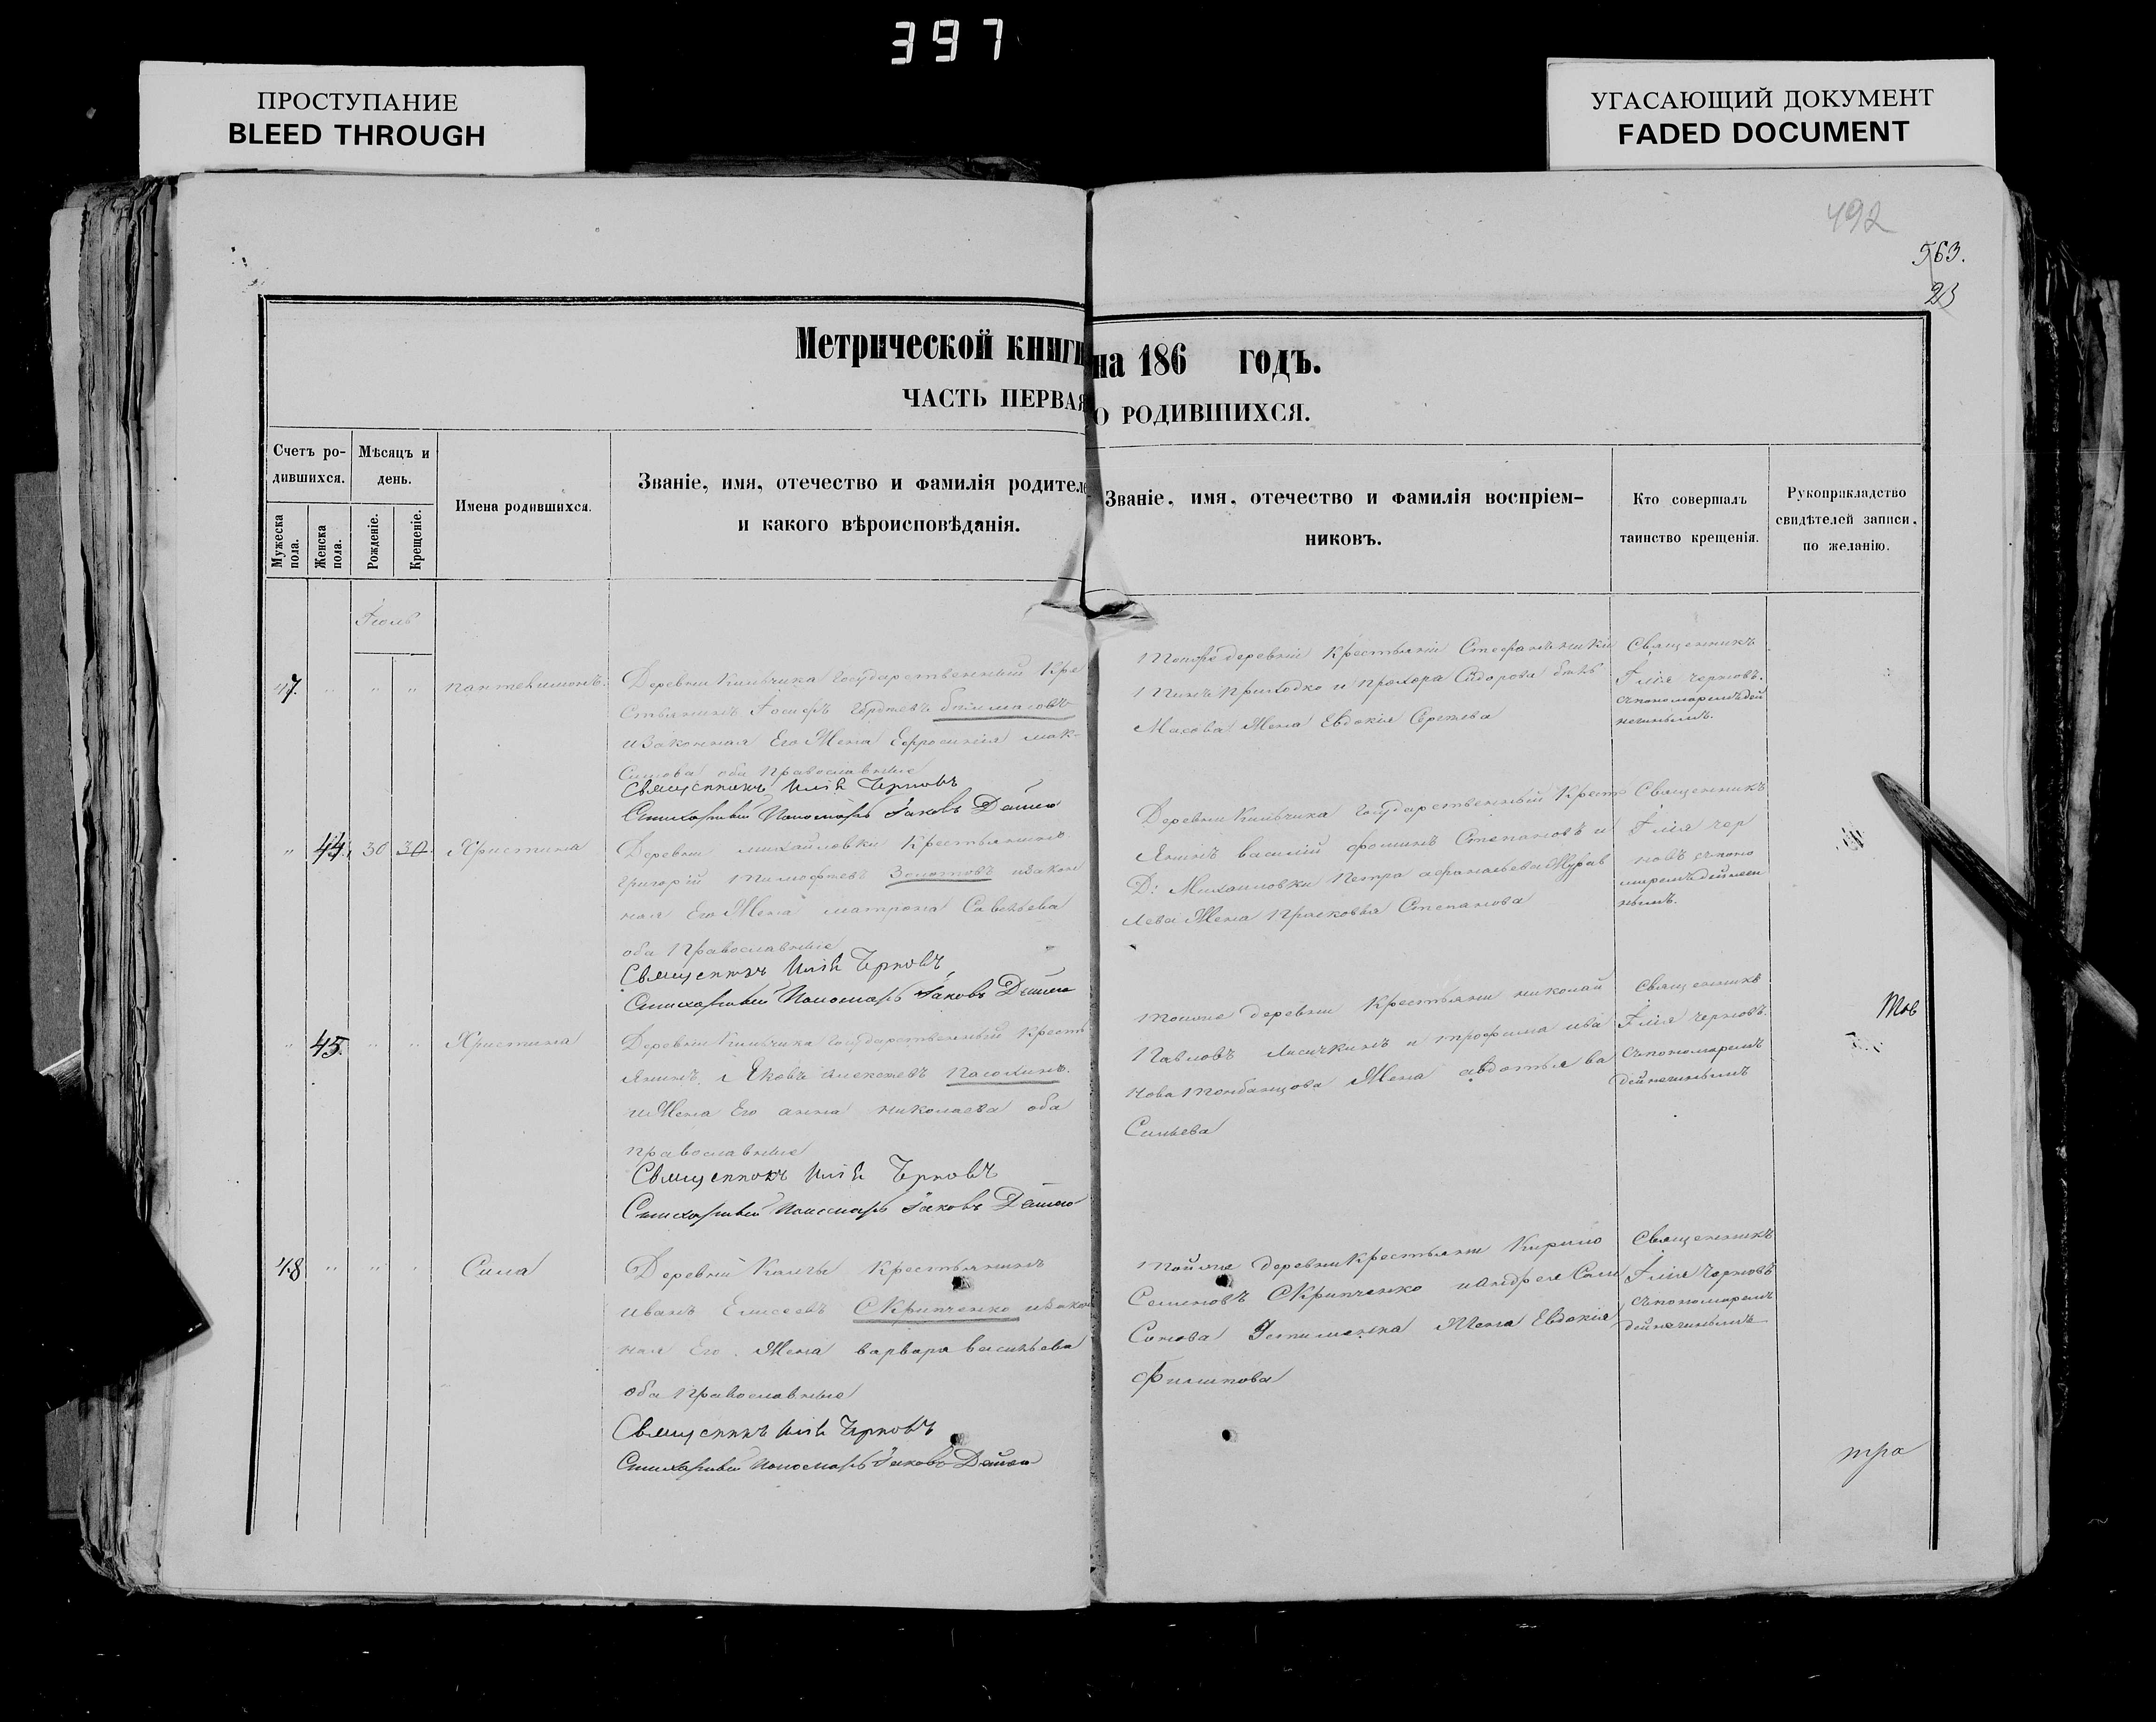 397
ПРОСТУПАНИЕ
BLEED THROUGH
УГАСАЮЩИЙ ДОКУМЕНТ
FADED DOCUMENT
492
563.
23
Метрической книги на 186 годъ.
ЧАСТЬ ПЕРВАЯ О РОДИВШИХСЯ.
Счетъ ро-
дившихся.
Мужеска пола.
Женска пола.
Мѣсяцъ и
день.
Рожденіе.
Крещеніе.
Имена родившихся.
Званіе, имя, отечество и фамилія родителе
и какого вѣроисповѣданія.
Званіе, имя, отечество и фамилія воспріем-
никовъ.
Кто совершалъ
таинство крещенія.
Рукоприкладство
свидѣтелей записи
по желанію.
Іюль
47. " " "
Пантелимонъ.
Деревни Кильчика Государственный Кре
стьянинъ
изаконная Его Жена Ефросинія Мак-
симова оба Православные
Священникъ Илія Черновъ
Стихарный Пономарь Іаковъ
деревни Крестьяни
Приходко и Прохора Сидорова
Масова Жена Евдокія Сергеева
Священникъ
Илія Черновъ.
съпономаремъ Дей
нечинымъ.
" 44. 30 30.
Христина
Деревни Михайловки Крестьянинъ
Григорій Тимофеевъ Золотовъ изакон
ная Его Жена Матрона Савельева
оба Православные
Священникъ Илія Черновъ
Стихарный Пономарь Іаковъ
Деревни Кильчика Государственный Крест
янинъ Василій Фоминъ Степановъ и
Д: Михаиловки Петра Афанасьева Журав
лева Жена Прасковья Степанова
Священникъ
Илія Чер
новъ съпоно
маремъ Дейнечи
нымъ.
" 45. " "
Христина
Деревни Кильчика Государственный Кресть
янинъ Яковъ Алексеевъ Пасолинъ.
иЖена Его Анна Николаева оба
Православные
Священникъ Илія Черновъ
Стихарный Пономарь Іаковъ
Тойже деревни Крестьяни Николай
Павловъ Лисичкинъ и Трофима Ива
нова Жена Авдотья Ва
сильева
Священникъ
Илія Черновъ.
Съпономаремъ
Дейнечинымъ
Мов
48 " " "
Сила
Деревни Крестьянинъ
Иванъ Елисеевъ Скрипченко изакон
ная Его Жена Варвара Васильева
оба Православные
Священникъ Илія Черновъ
Стихарный Пономарь Іаковъ
Тойже деревни Крестьяни Кирило
Семеновъ Скрипченко иАндрея Сам
сонова Устименка Жена Евдокія
Филипова
Священникъ
Илія Черновъ
съпономаремъ
Дейнечинымъ
тра